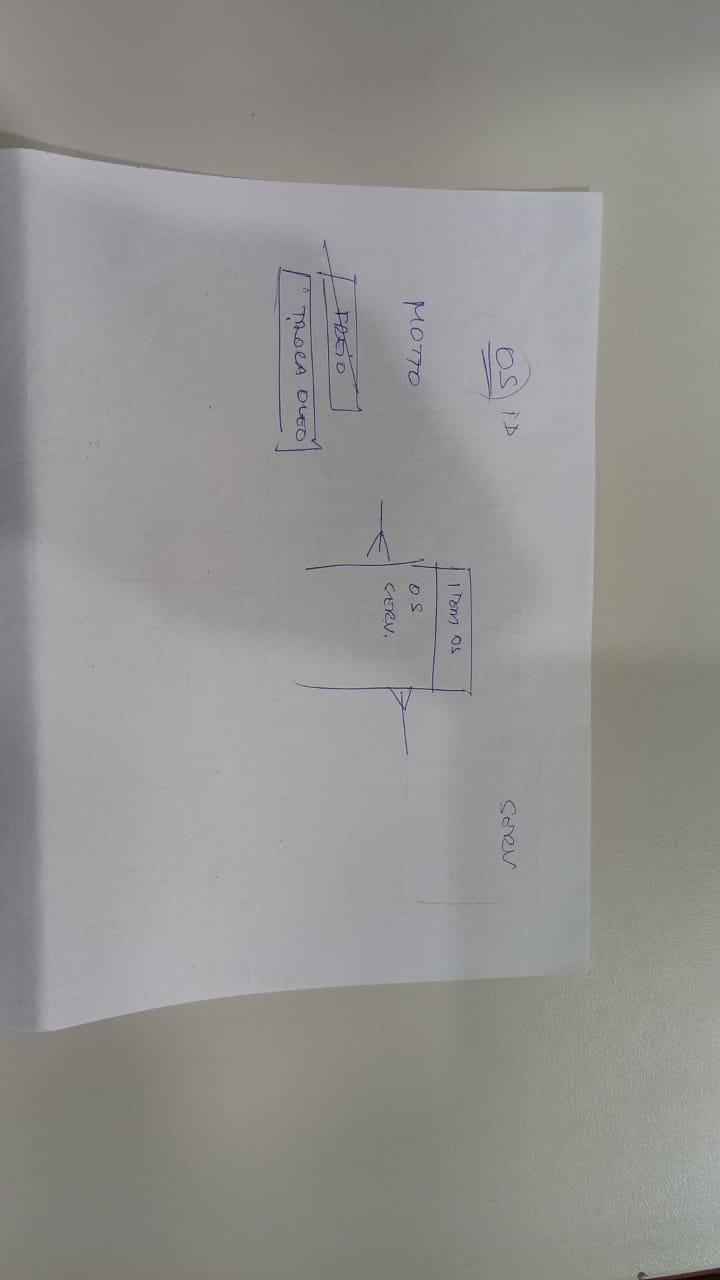 OS ID
MOTTO
FREIO
TROCA OLEO
ITEM OS
OS
SERV.
SERV